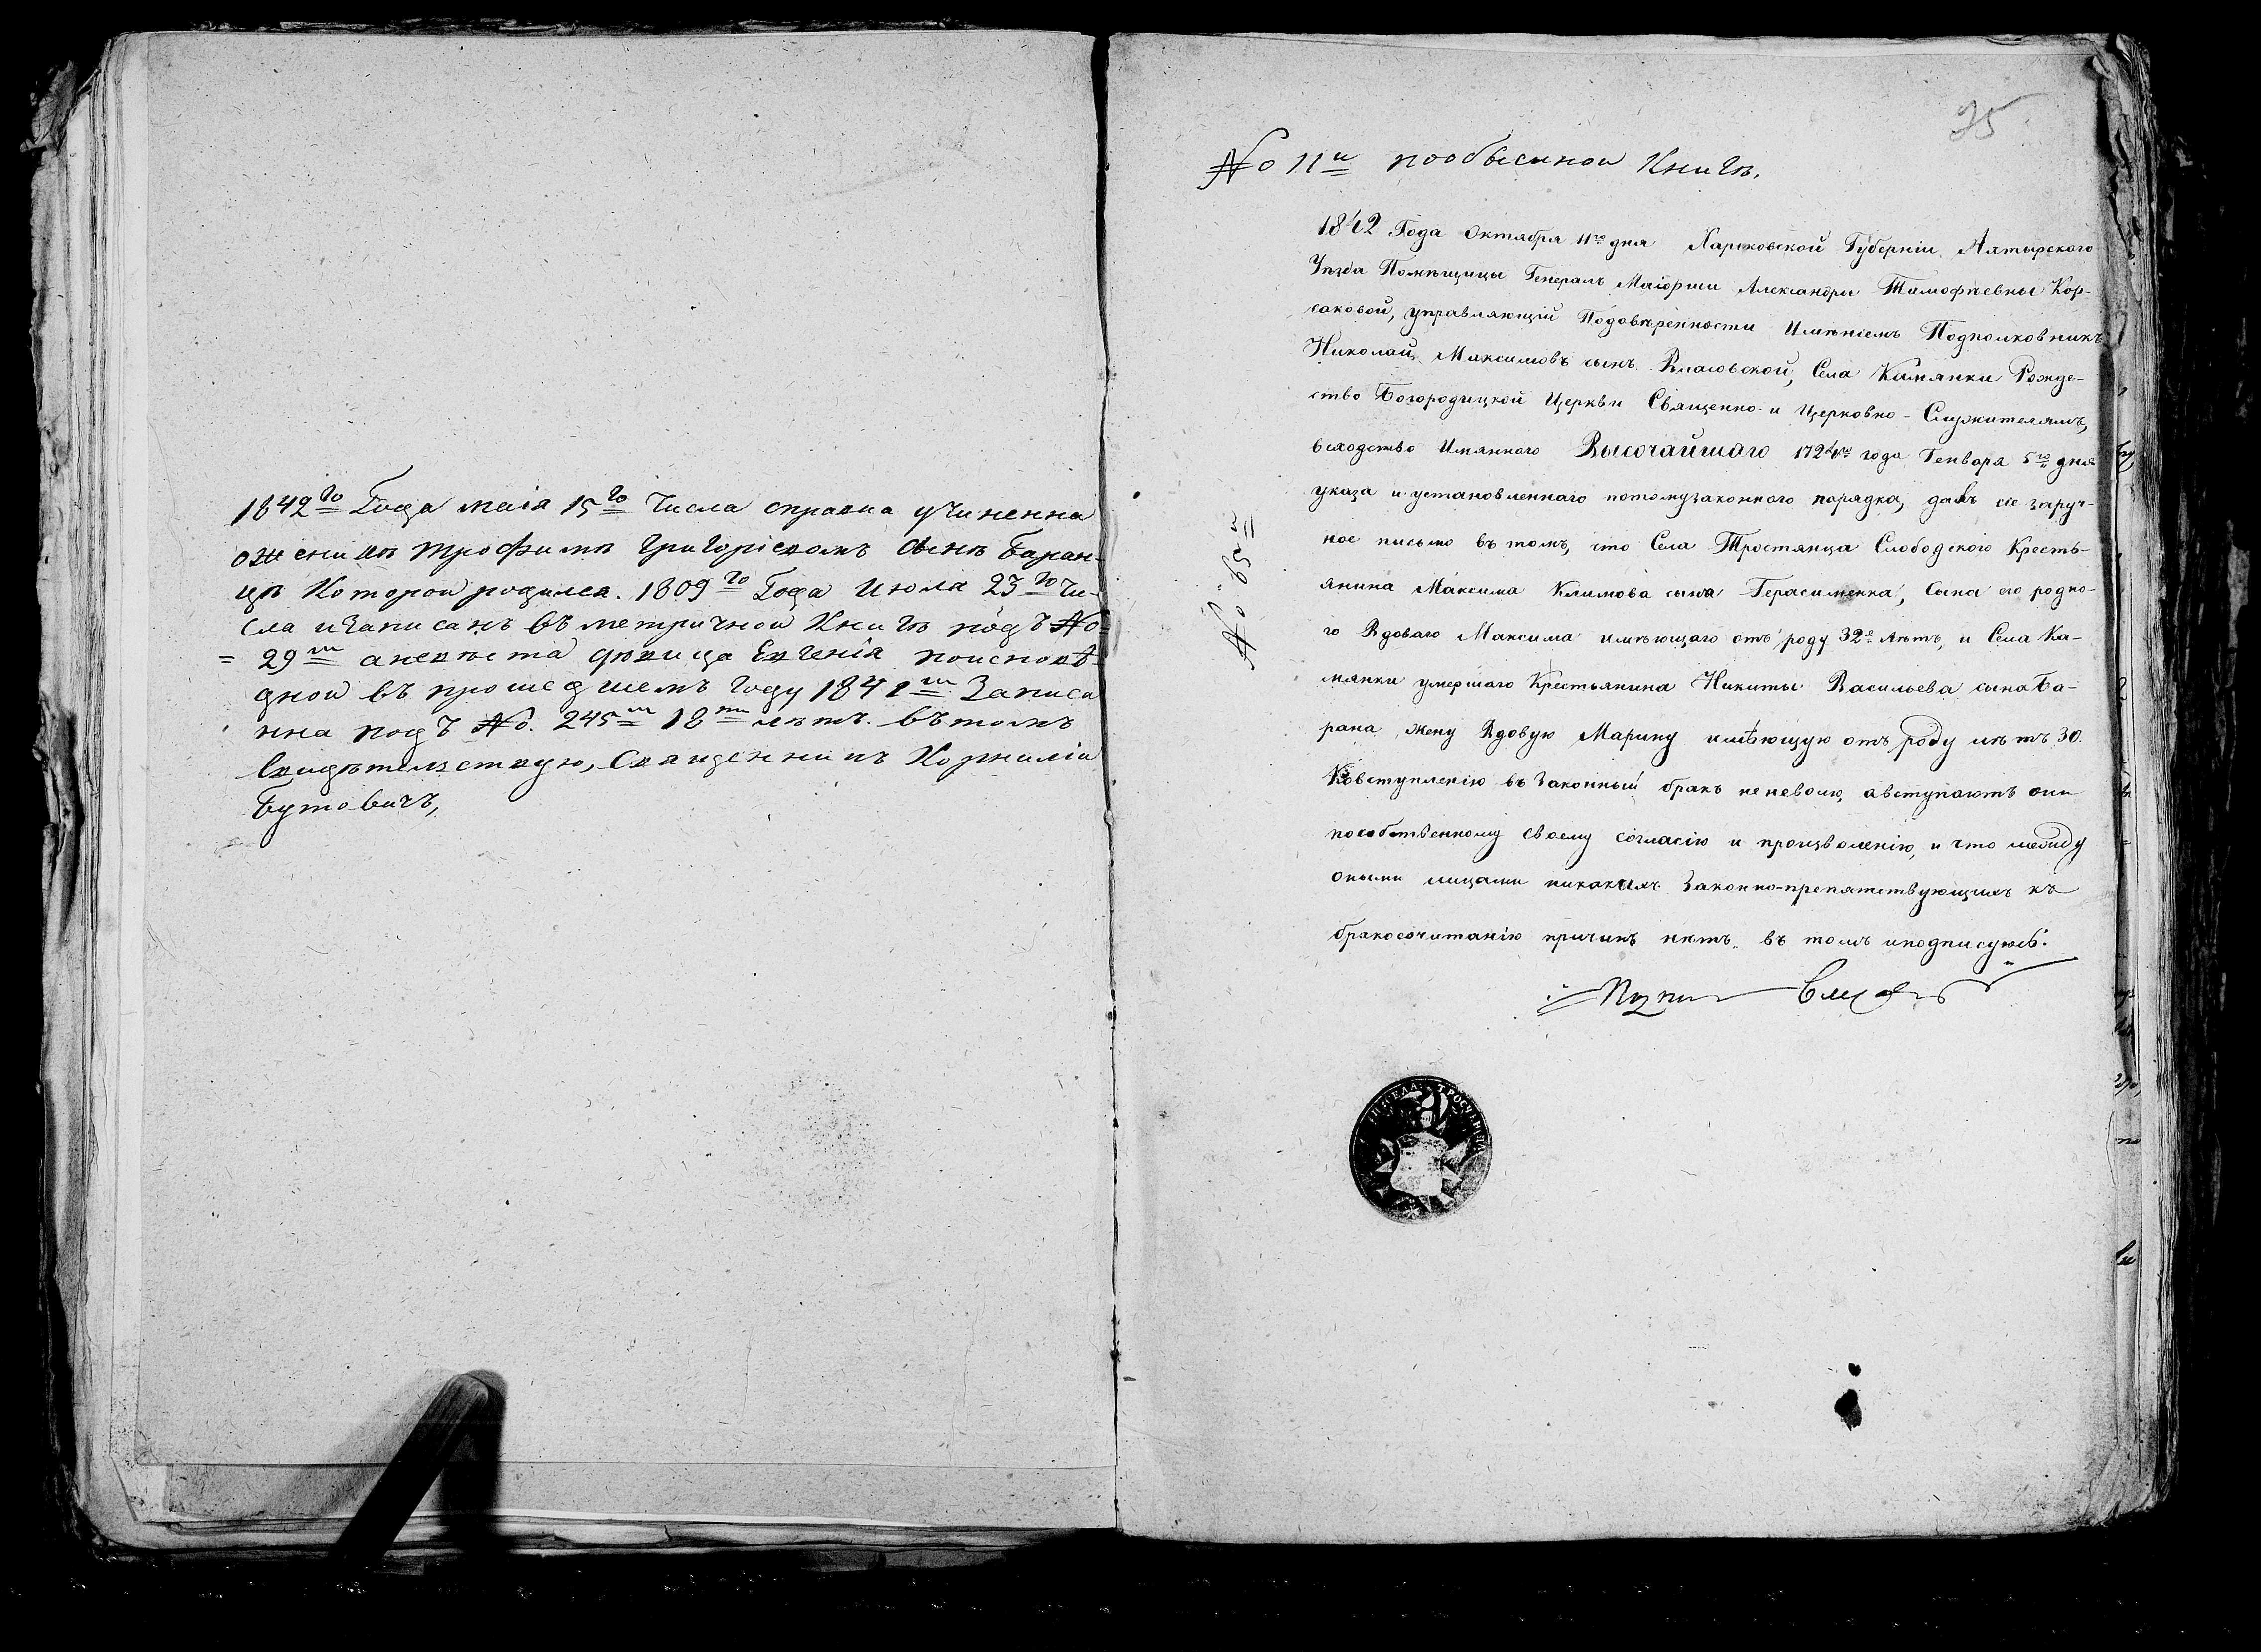 1842го Года маія 15го Числа справка учиненна
оженикѣ трофимѣ григоріевомъ сынѣ Баран-
цѣ Которой родился. 1809го Года Июля 23го Чи-
сла изаписанъ въ метричной Книгѣ подъ №=
= 29м аневѣста дѣвица Евгенія поисповѣ-
дной въ прошедшемъ году 1841м Записа
нна подъ №. 245м 18ти лѣтъ. вътомъ
Свидѣтельствую, Священникъ Корнилій
Бутовичъ,
35
№ 11й пообысиной Книгѣ.
№ 65й
1842 Года Октября 11го дня Харьковской Губерніи Ахтырскаго
Уѣзда Помѣщицы Генералъ Маіорши Александры Тимофѣевны Кор-
саковой, управляющій Подовѣренности Имѣніемъ Подполковникъ
Николай Максимовъ сынъ Власовской, Села Камянки Рожде-
ство Богородицкой Церкви Священно- и Церковно-Служителямъ,
всходство Имяннаго Высочайшаго 1724го года Генваря 5го дня
указа и установленнаго потомузаконнаго порядка, далъ сіе заруч-
ное письмо въ томъ, что Села Тростянца Слободского Кресть-
янина Максима Климова сына Герасименка, Сына его родно-
го Вдоваго Максима имѣющаго отъ роду 32е лѣтъ, и Села Ка-
мянки умершаго Крестьянина Никиты Васильева сына Ба-
рана жену Вдовую Марину имѣющую отъ роду лѣтъ 30.
Ковступленію въ Законный бракъ неневолю, авступаютъ они
пособственному своему согласію и произволенію, и что между
оными лицами никакихъ Законно-препятствующихъ къ
бракосочитанію причинъ нѣтъ. въ томъ иподписуюсь.